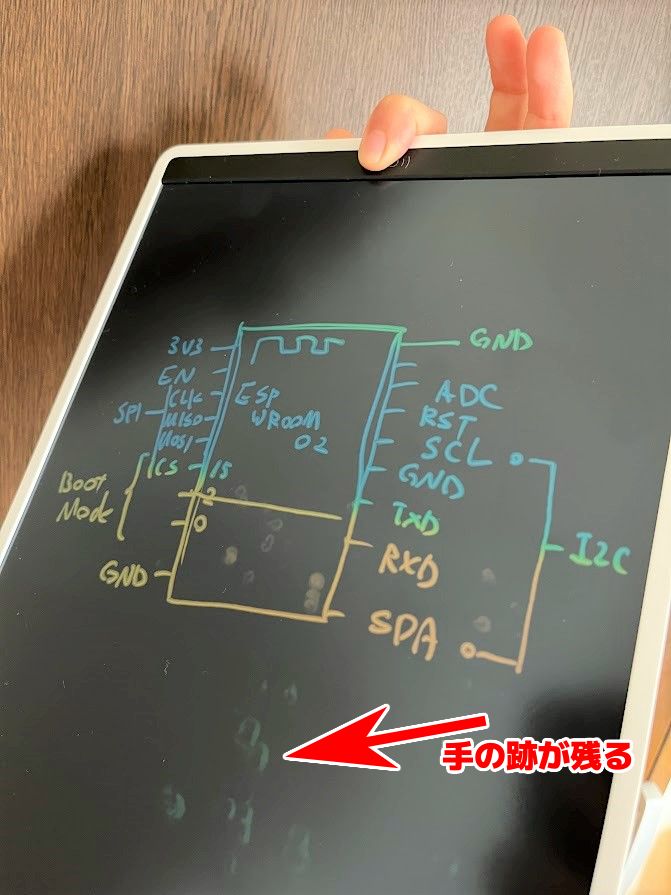 3V3
EN
CLK
MISO
MOSI
SPI
CS
15
2
0
Boot
Mode
GND
ESP
WROOM
02
GND
ADC
RST
SCL
GND
TXD
RXD
SDA
I2C
手の跡が残る